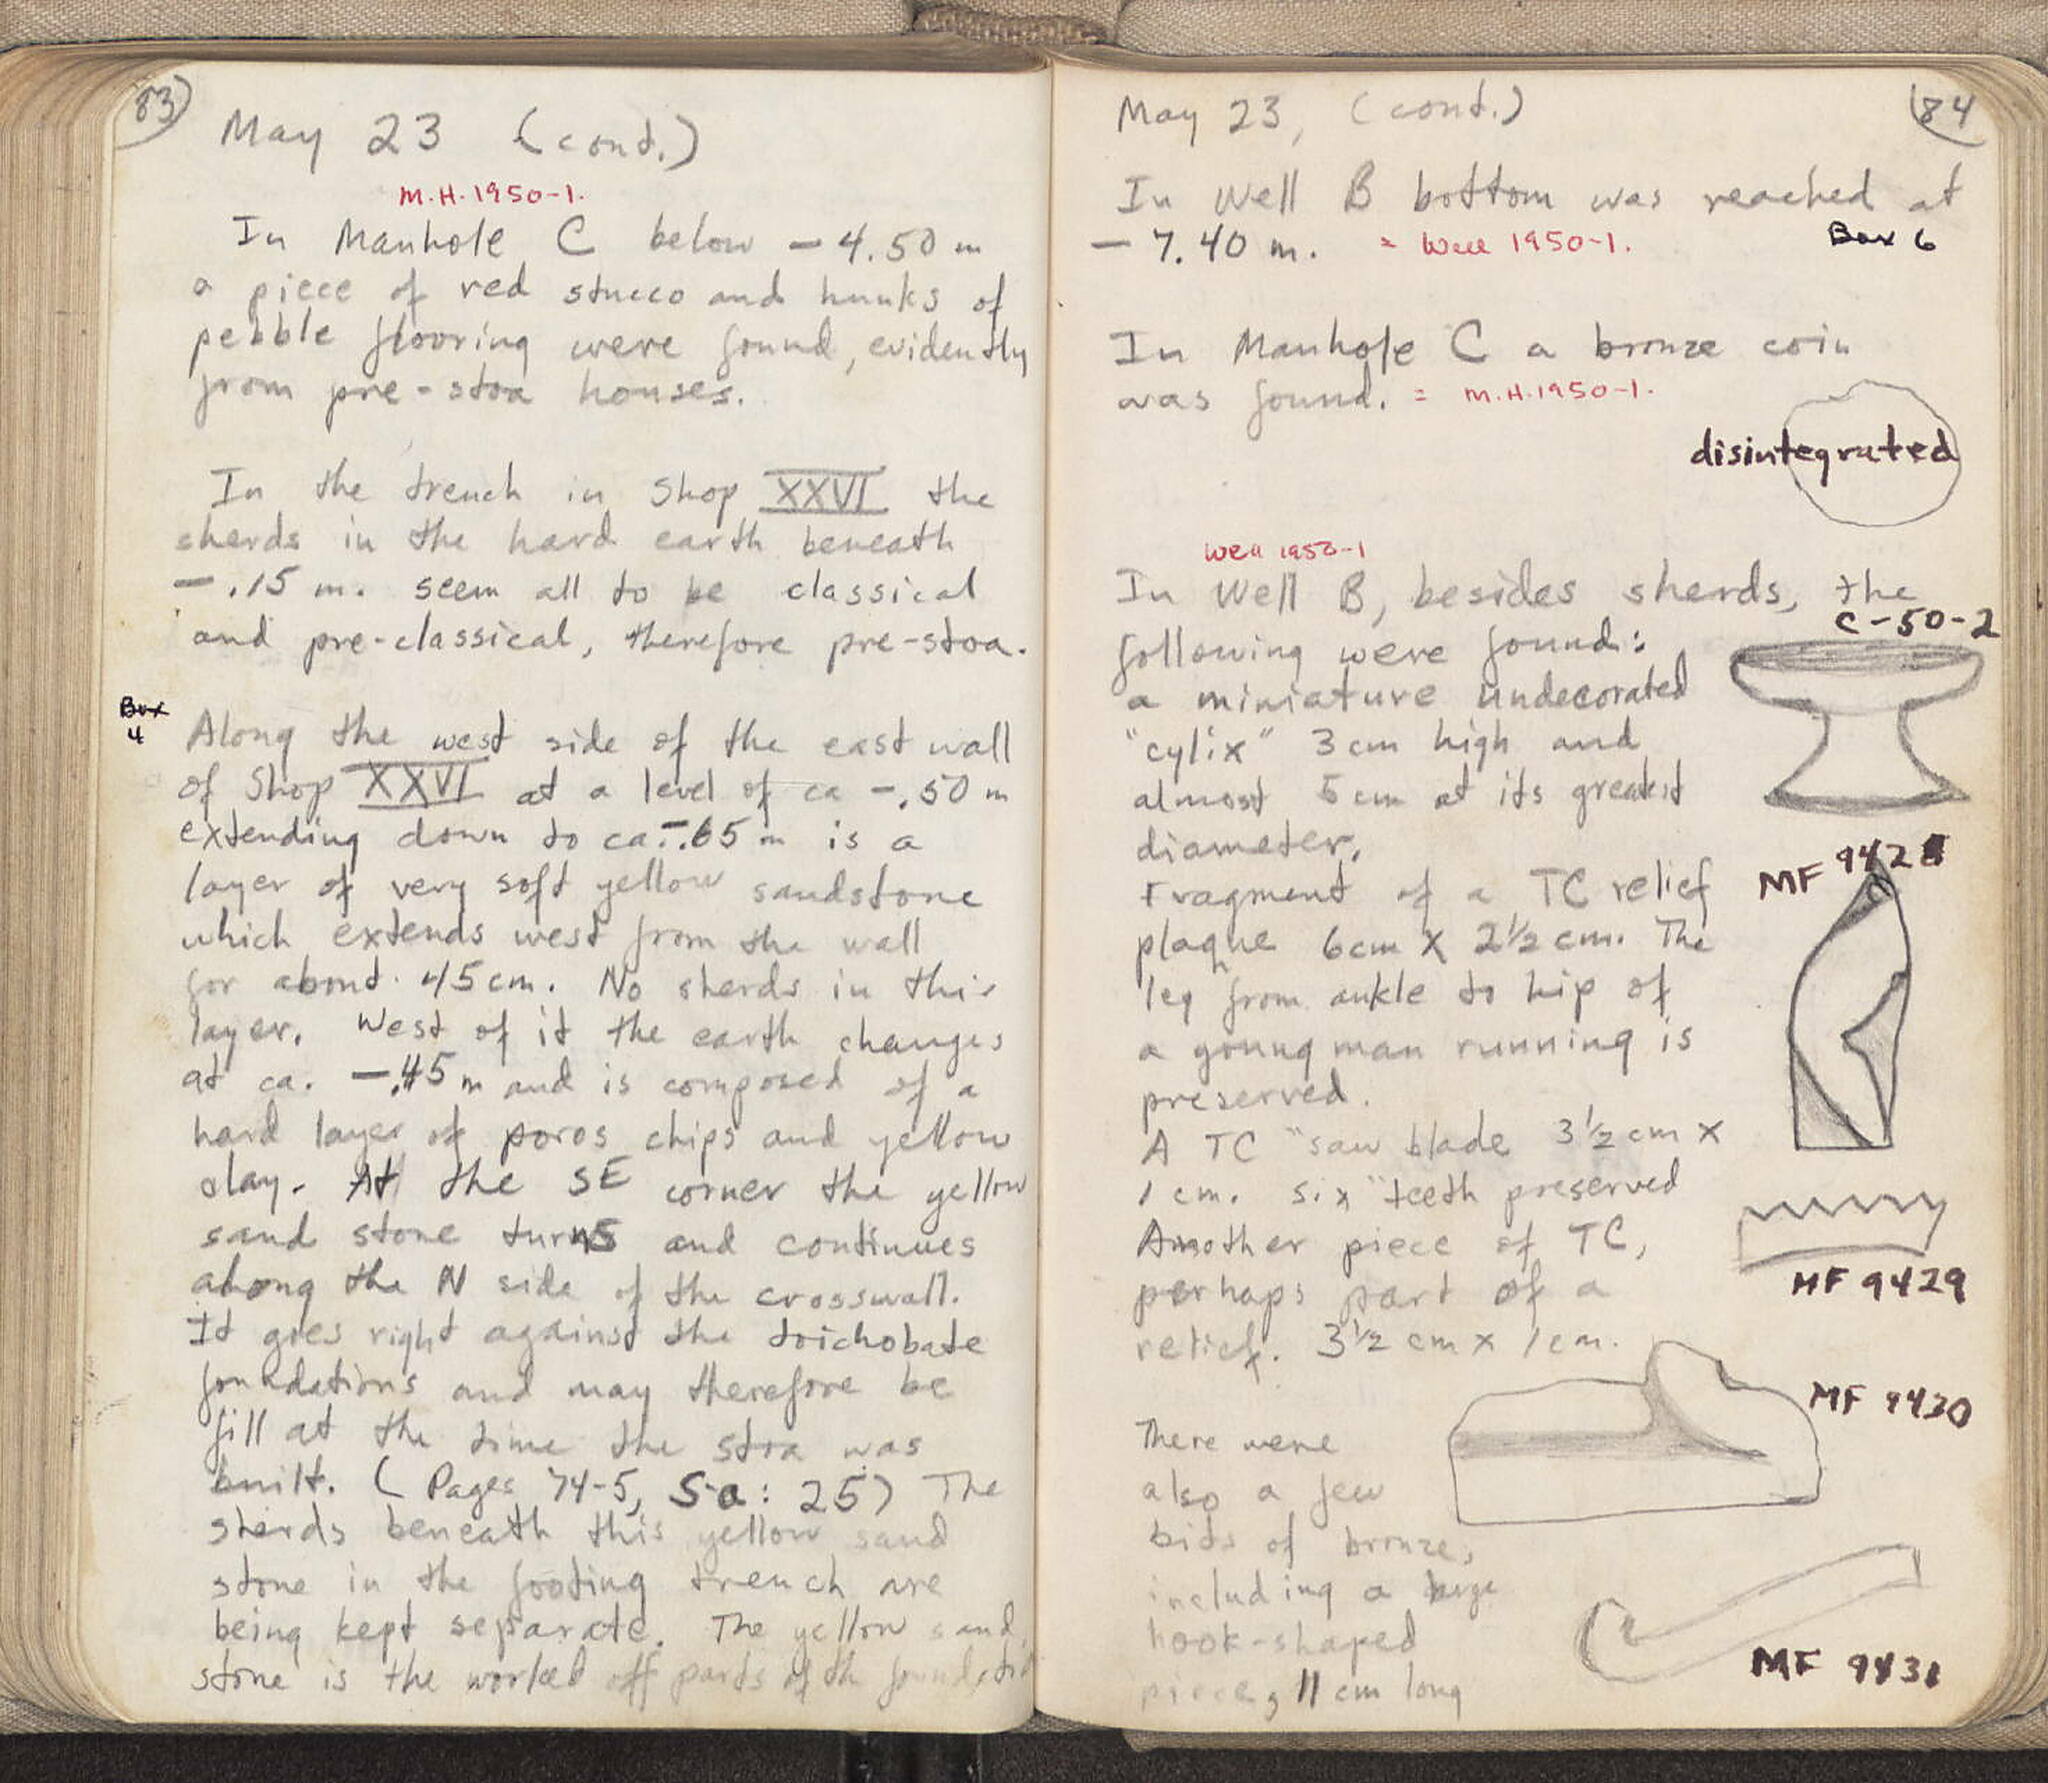 83
May 23 (cont.)
M.H. 1950-1.
In Manhole C below - 4.50 m
a piece of red stucco and hunks of
pebble flooring were found, evidently
from pre-stoa houses.
In the trench in Shop XXVI the
sherds in the hard earth beneath
- .15 m. seem all to be classical
and pre-classical, therefore pre-stoa.
Box
4
Along the west side of the east wall
of Shop XXVI at a level of ca -.50 m
extending down to ca -.65 m is a
layer of very soft yellow sandstone
which extends west from the wall
for about .45 cm. No sherds in this
layer. West of it the earth changes
at ca. -.45 m and is composed of a
hard layer of poros chips and yellow
clay. At the SE corner the yellow
sand stone turns and continues
along the N side of the crosswall.
It goes right against the toichobate
foundations and may therefore be
fill at the time the stoa was
built. (Pages 74-5, S-a: 25) The
sherds beneath this yellow sand
stone in the footing trench are
being kept separate. The yellow sand
stone is the worked off parts of th foundation
84
May 23, (cont.)
In Well B bottom was reached at
- 7.40 m. = Well 1950-1. Box 6
In Manhole C a bronze coin
was found. = M.H. 1950-1.
disintegrated
Well 1950-1
In Well B, besides sherds, the
C-50-2
following were found:
a miniature undecorated
"cylix" 3 cm high and
almost 5 cm at its greatest
diameter.
MF 9428
Fragment of a TC relief
plaque 6cm x 2½ cm. The
leg from ankle to hip of
a young man running is
preserved.
A TC "saw blade 3½ cm x
1 cm. six "teeth preserved
Another piece of TC,
MF 9429
perhaps part of a
relief. 3½ cm x 1 cm.
MF 9430
There were
also a few
bits of bronze,
including a large
hook-shaped
piece, 11 cm long
MF 9431